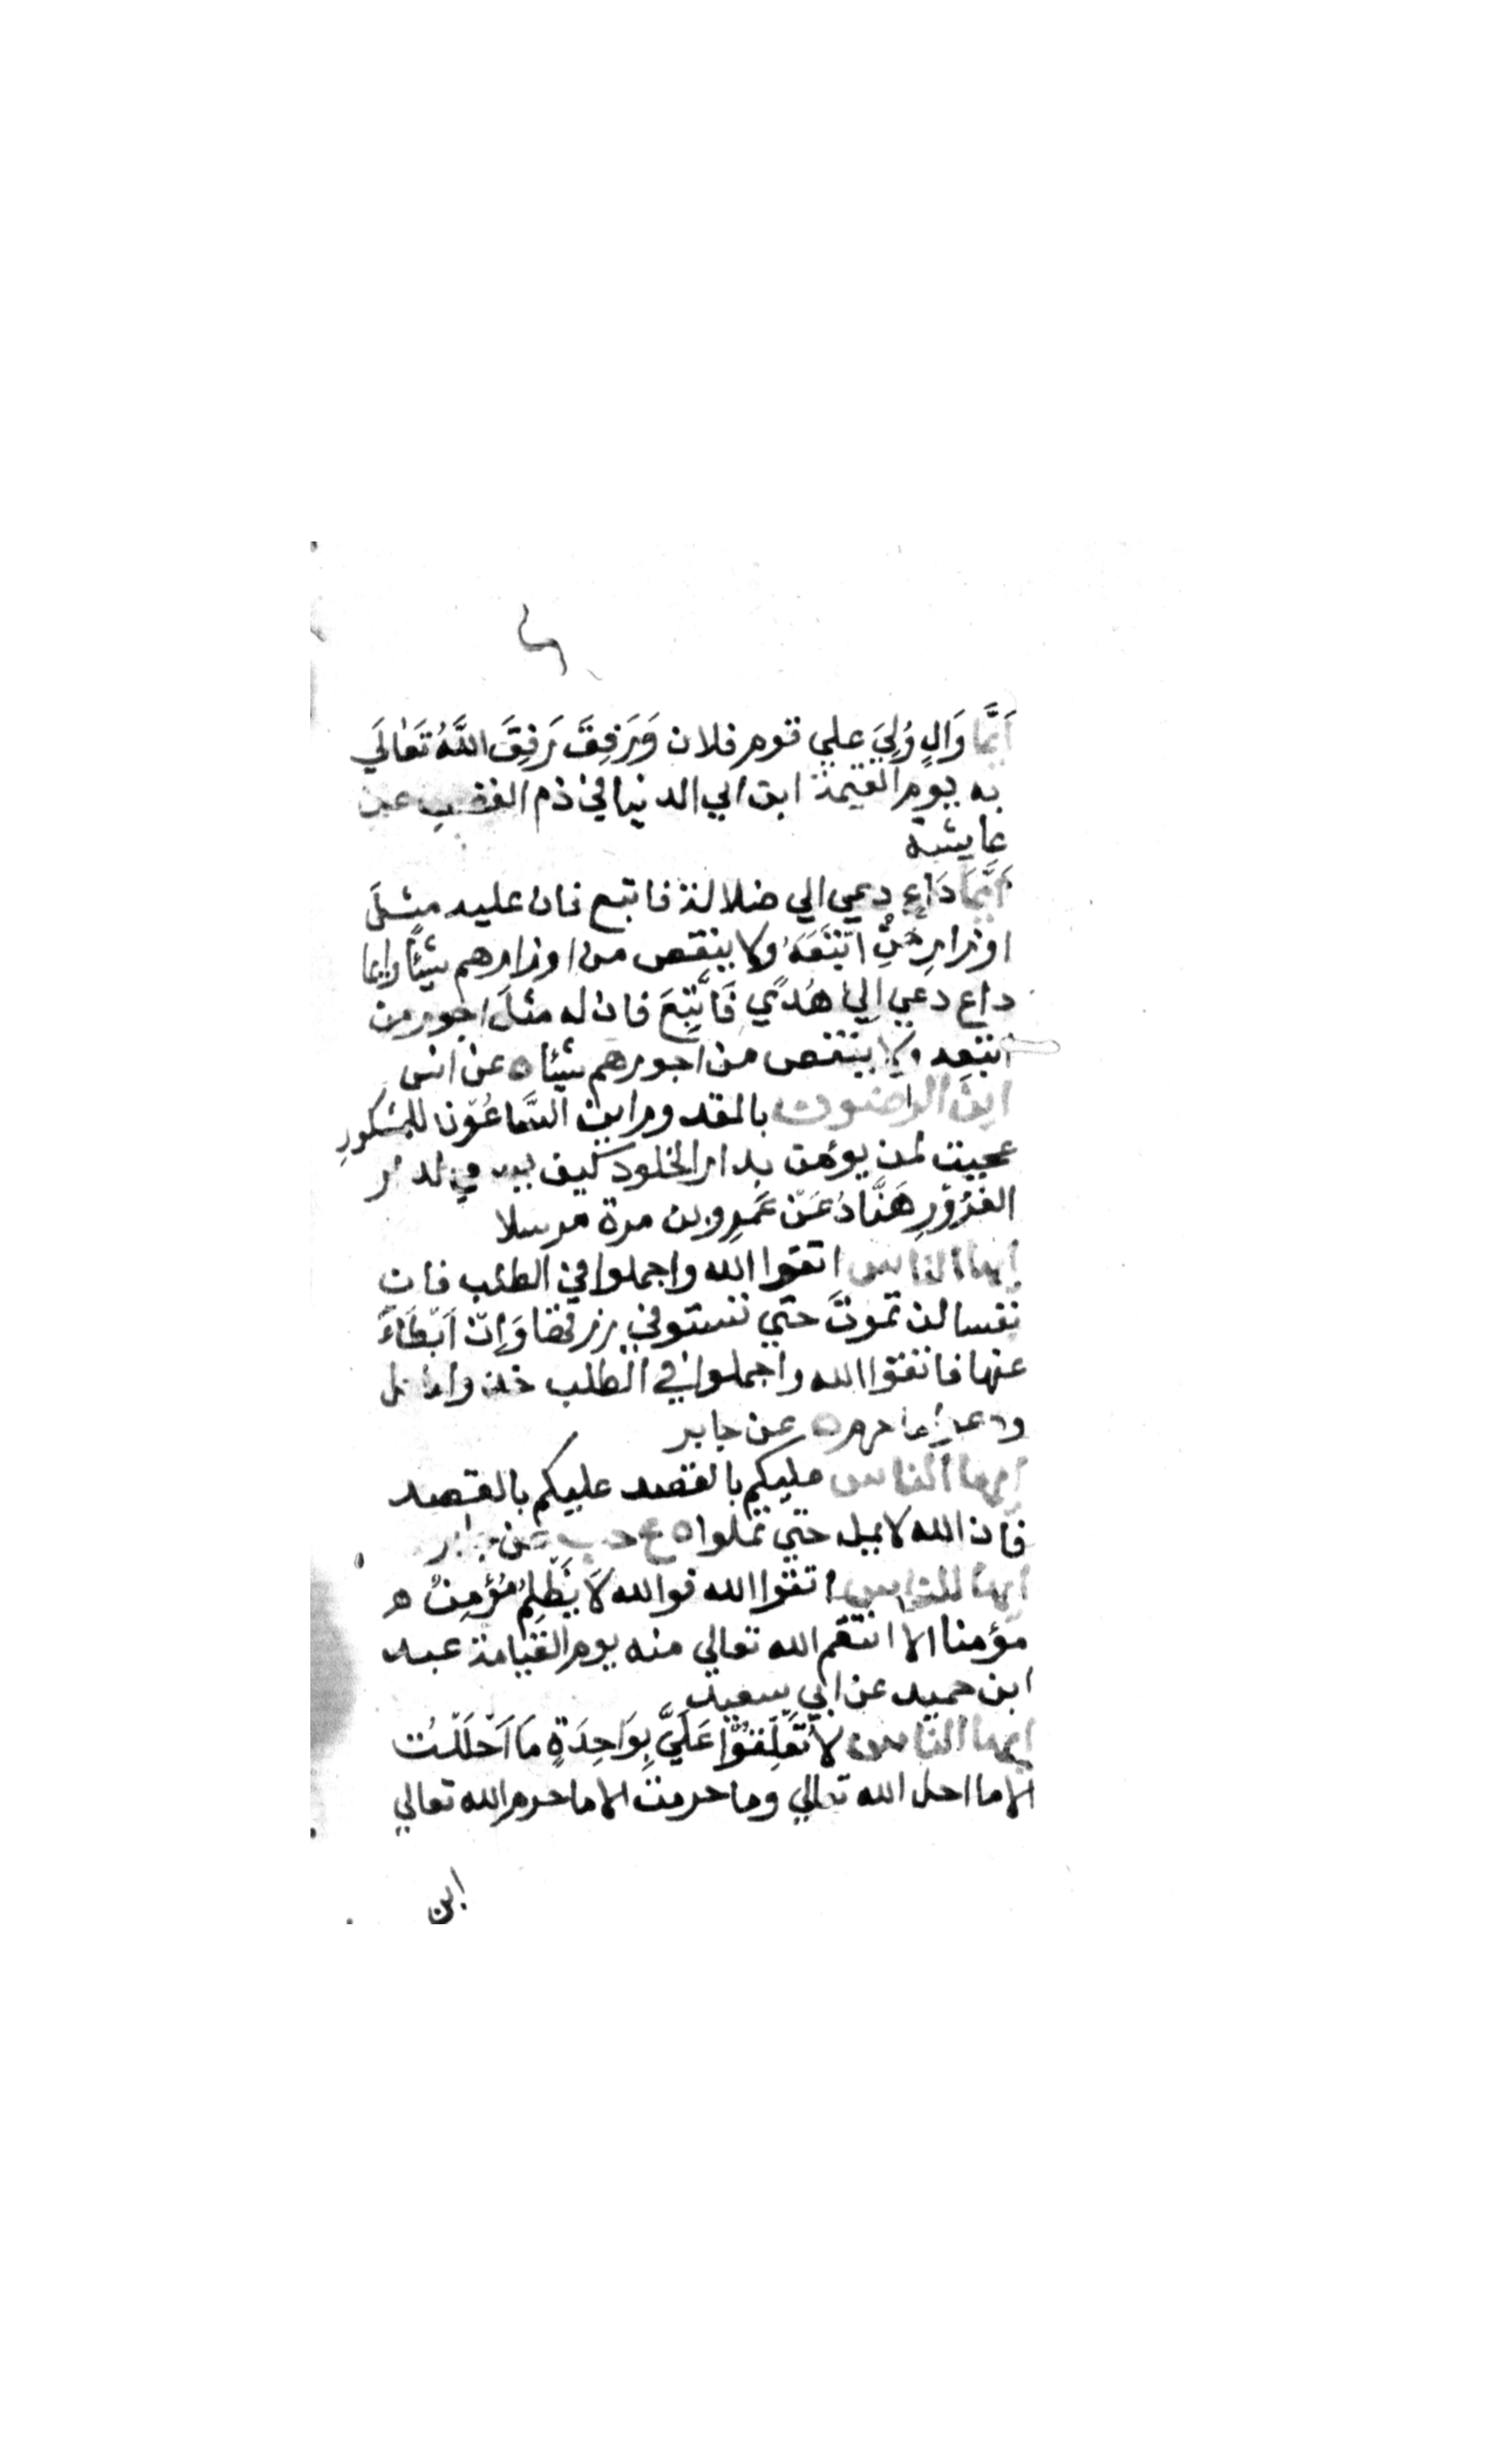 اَيَّمَا وَالٍ وُلِيَ علي قوم فلان وَرَفِقَ رَفِقَ اللَّهُ تَعَالَي
به يوم القيمة ابن ابي الدنيا في ذم الغضب عن
عايشة
اَيَّمَا دَاعٍ دعي الي ضلالة فاتبع فان عليه مثلَ
اوزارِ مَنِ اتبَعَهُ ولا ينقص من اوزارهم شيئًا وايما
داع دعي الي هُدًي فَاتُّبِعَ فان له مثلَ اجور من
اتبعه ولا ينقص من اجورهم شيئا ه عن انس
اين الراضون بالمقدور اين السَّاعُوْن للمشكورِ
عجبت لمن يؤمن بدار الخلود كيف
الغُرُوْرِ هَنَّادُ عَنْ عَمرو بن مرة مرسلا
ايها الناس اتقوا الله واجملوا في الطلب فان
نفسا لن تموتَ حتي تستوفي رزقها وَاِنْ اَبْطَاءَ
عنها فاتقوا الله واجملوا في الطلب خذوا ما حل
ودعوا ما حرم ه عن جابر
ايها الناس عليكم بالقصد عليكم بالقصد
فان الله لا يمل حتي تملوا ه ع حب عن جابر
ايها الناس اتقوا الله فوالله لَا يَظْلِمُ مُؤْمِنٌ
مؤمنا الا انتقم الله تعالي منه يوم القيامة عبد
ابن حميد عن ابي سعيد
ايها الناس لا تَعَلَّقُوْا عَلَيَّ بِوَاحِدَةٍ مَا اَحْلَلْتُ
الا ما احل الله تعالي وما حرمت الا ما حرم الله تعالي
ابن